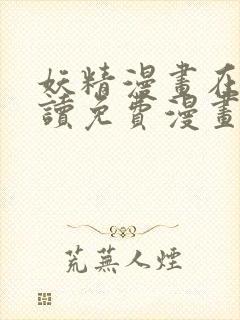 妖精漫畫在
讀免費漫畫
荒蕪人煙